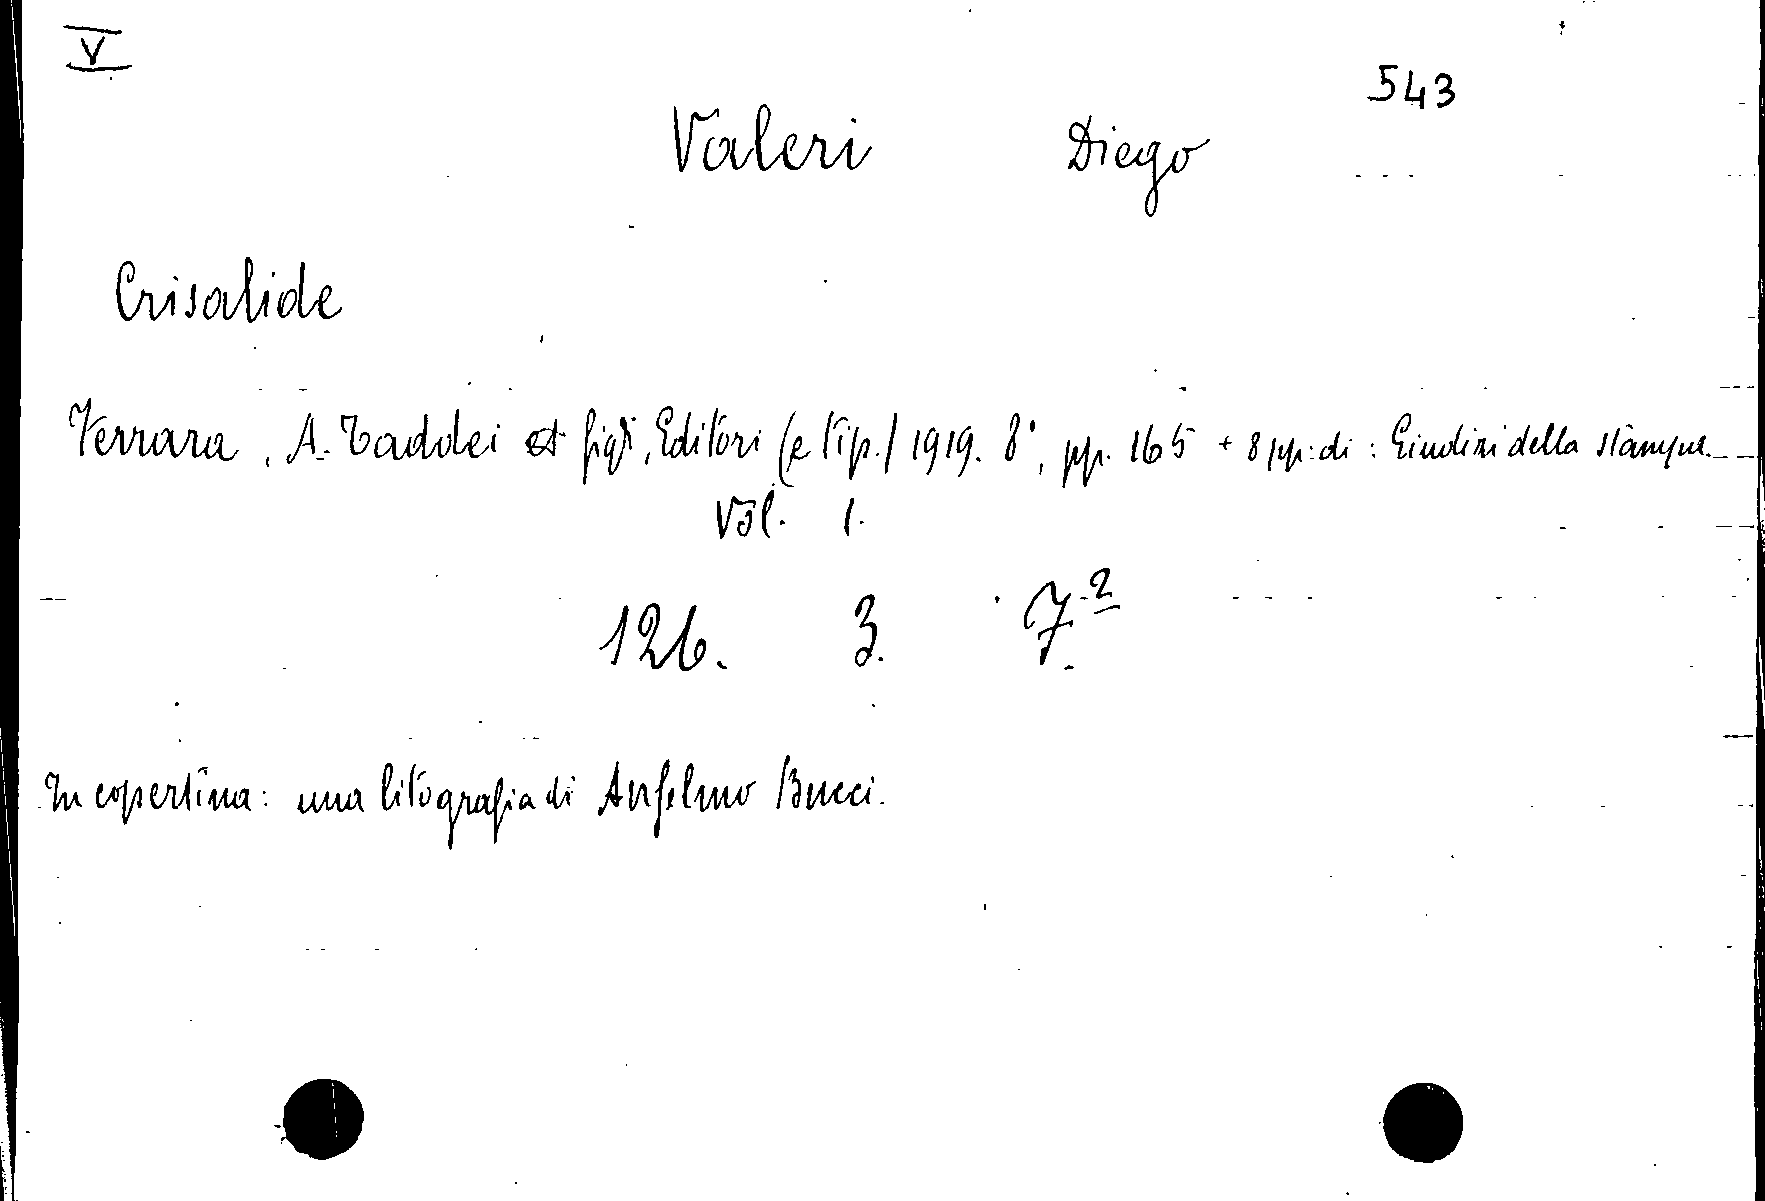 V
543
Valeri Diego
Crisalide
Ferrara, A. Taddei et figli, Editori (e Tip.) 1919. 8°, pp. 165 + 8 pp. di: Giudizi della stampa.
Vol. 1.
126. 3. 7.²
In copertina: una litografia di Anselmo Bucci.